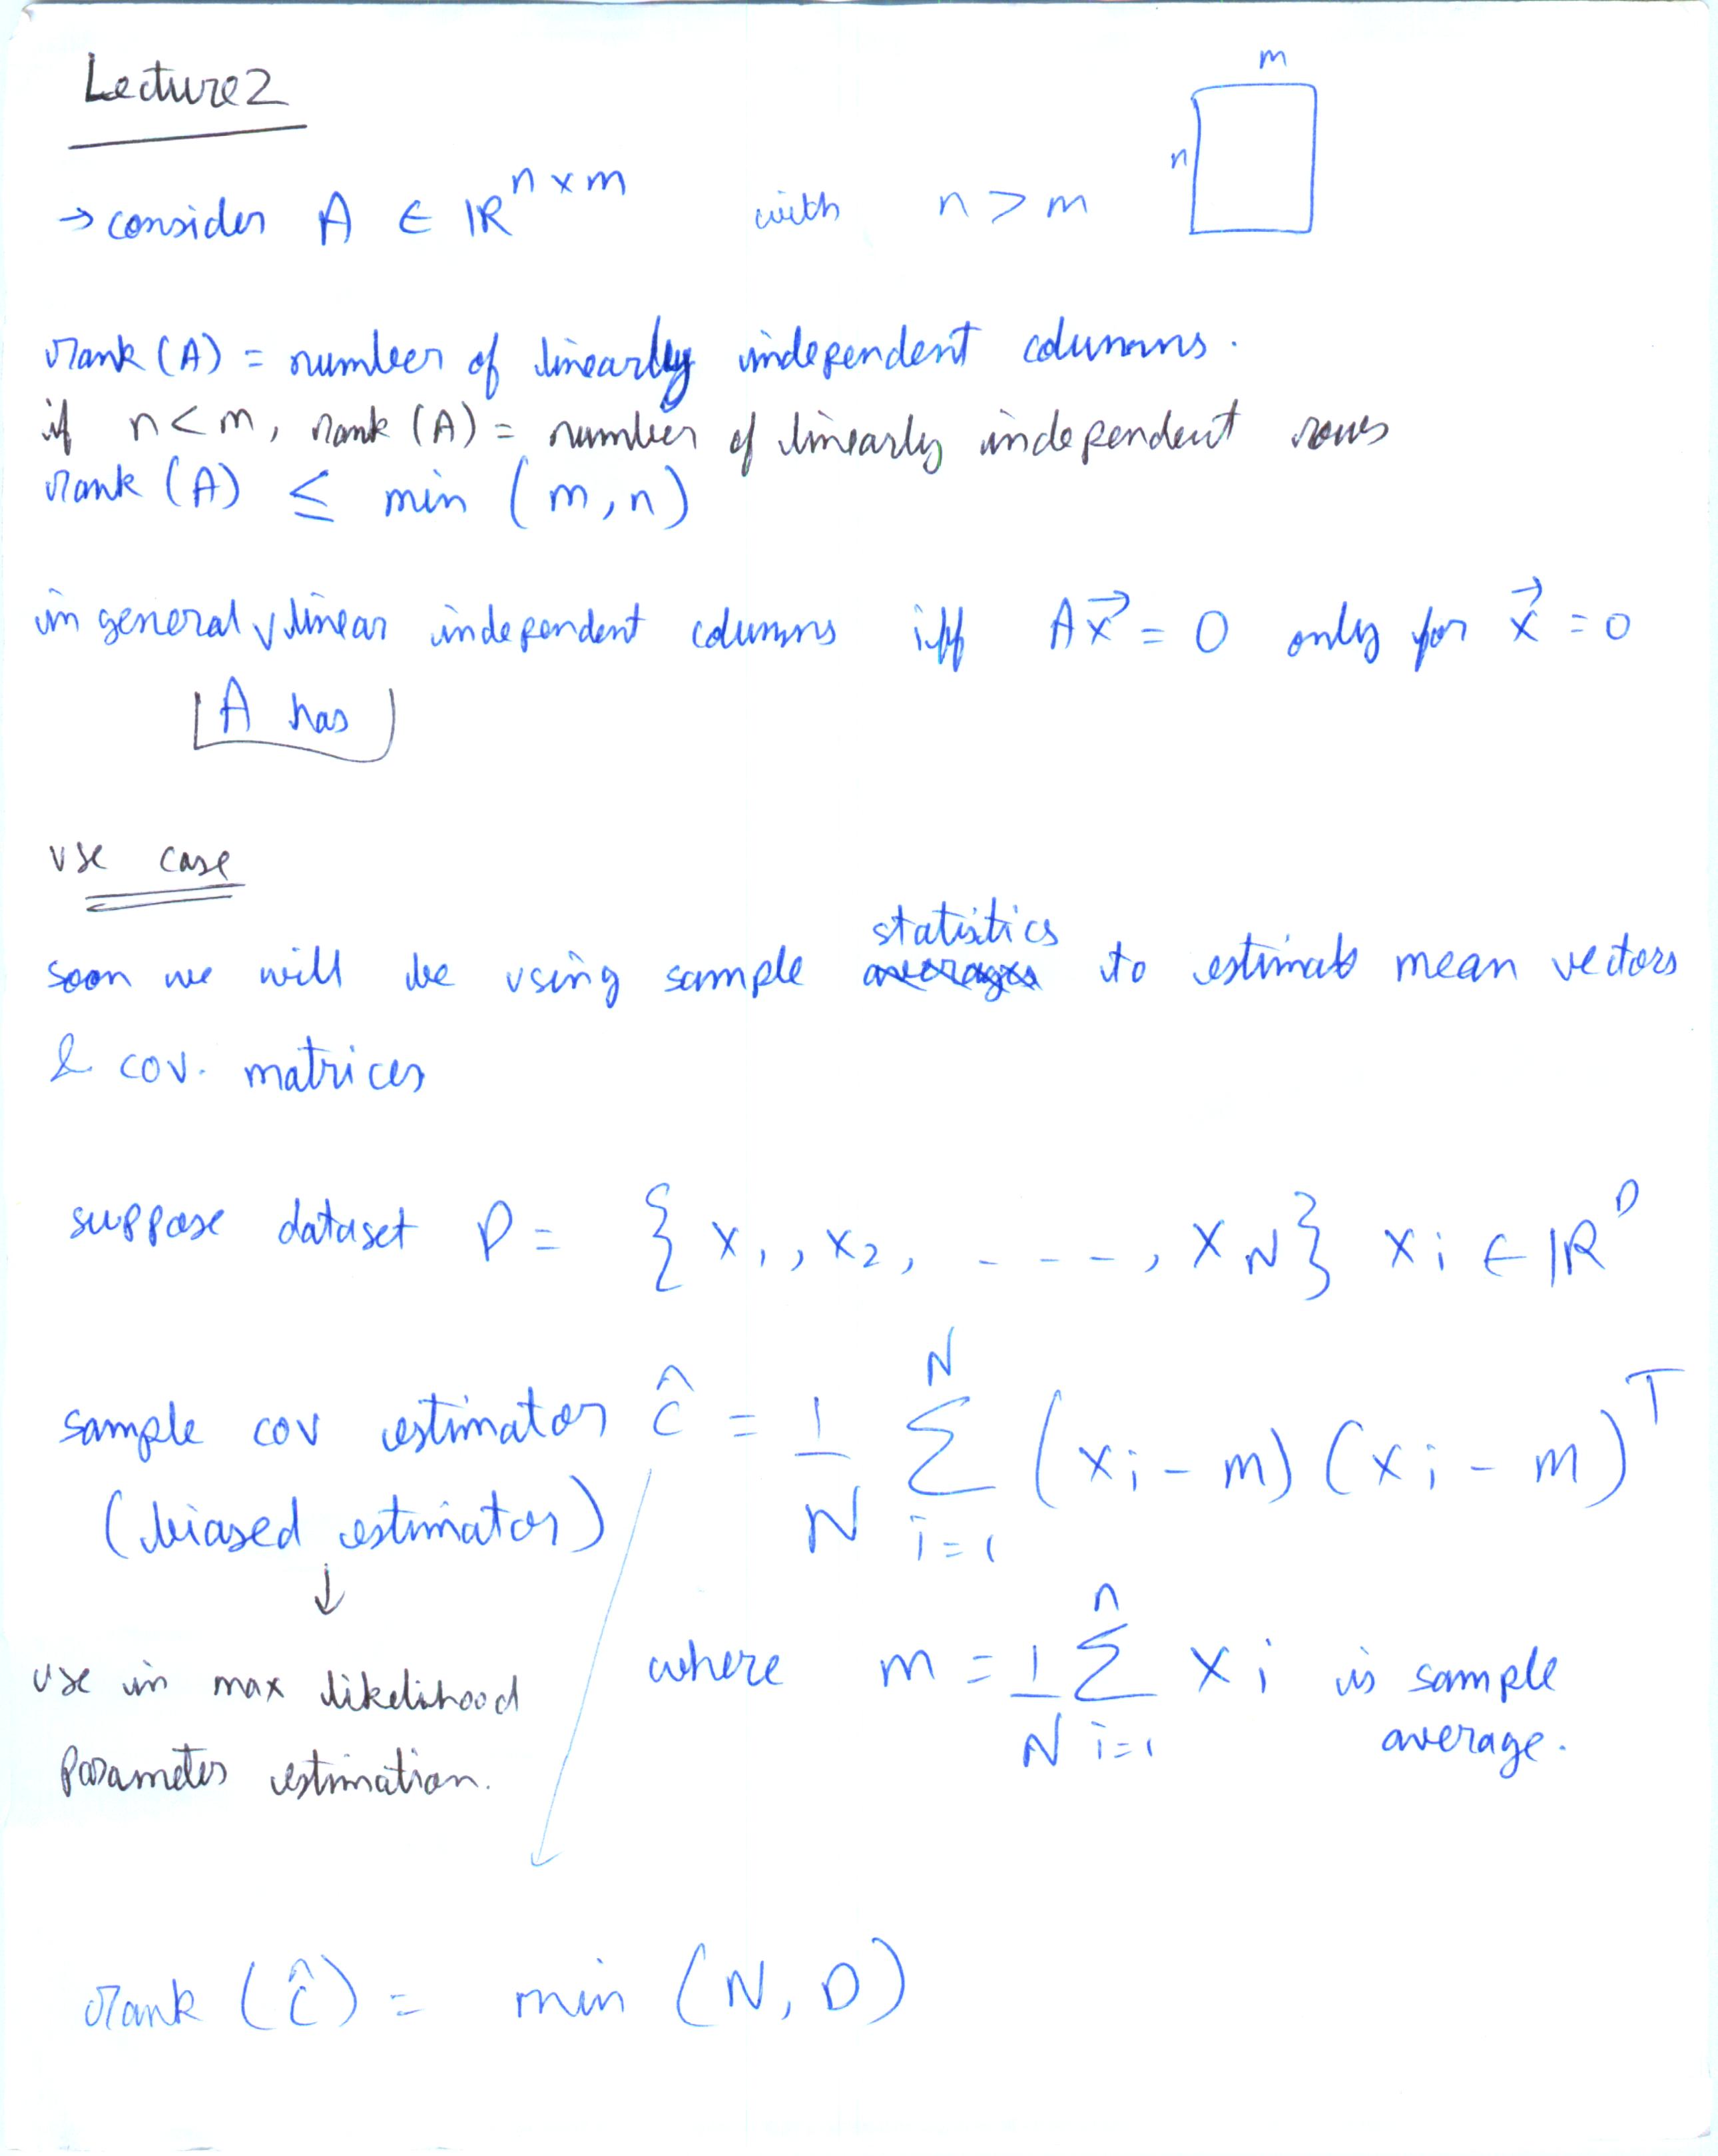 Lecture 2
m
n
→ consider A ∈ ℝ^{n×m} with n > m
rank (A) = number of linearly independent columns.
if n < m, rank (A) = number of linearly independent rows
rank (A) ≤ min (m, n)
in general √ linear independent columns iff Ax⃗ = 0 only for x⃗ = 0
A has
use case
statistics
soon we will be using sample averages to estimate mean vectors
& cov. matrices
suppose dataset D = { x₁, x₂, - - - -, x_N } x_i ∈ ℝ^D
sample cov estimator ĉ = 1/N Σ_{i=1}^{N} (x_i - m) (x_i - m)^T
(biased estimator)
↓
where m = 1/N Σ_{i=1}^{n} x_i is sample
average.
use in max likelihood
parameter estimation.
rank (ĉ) = min (N, D)